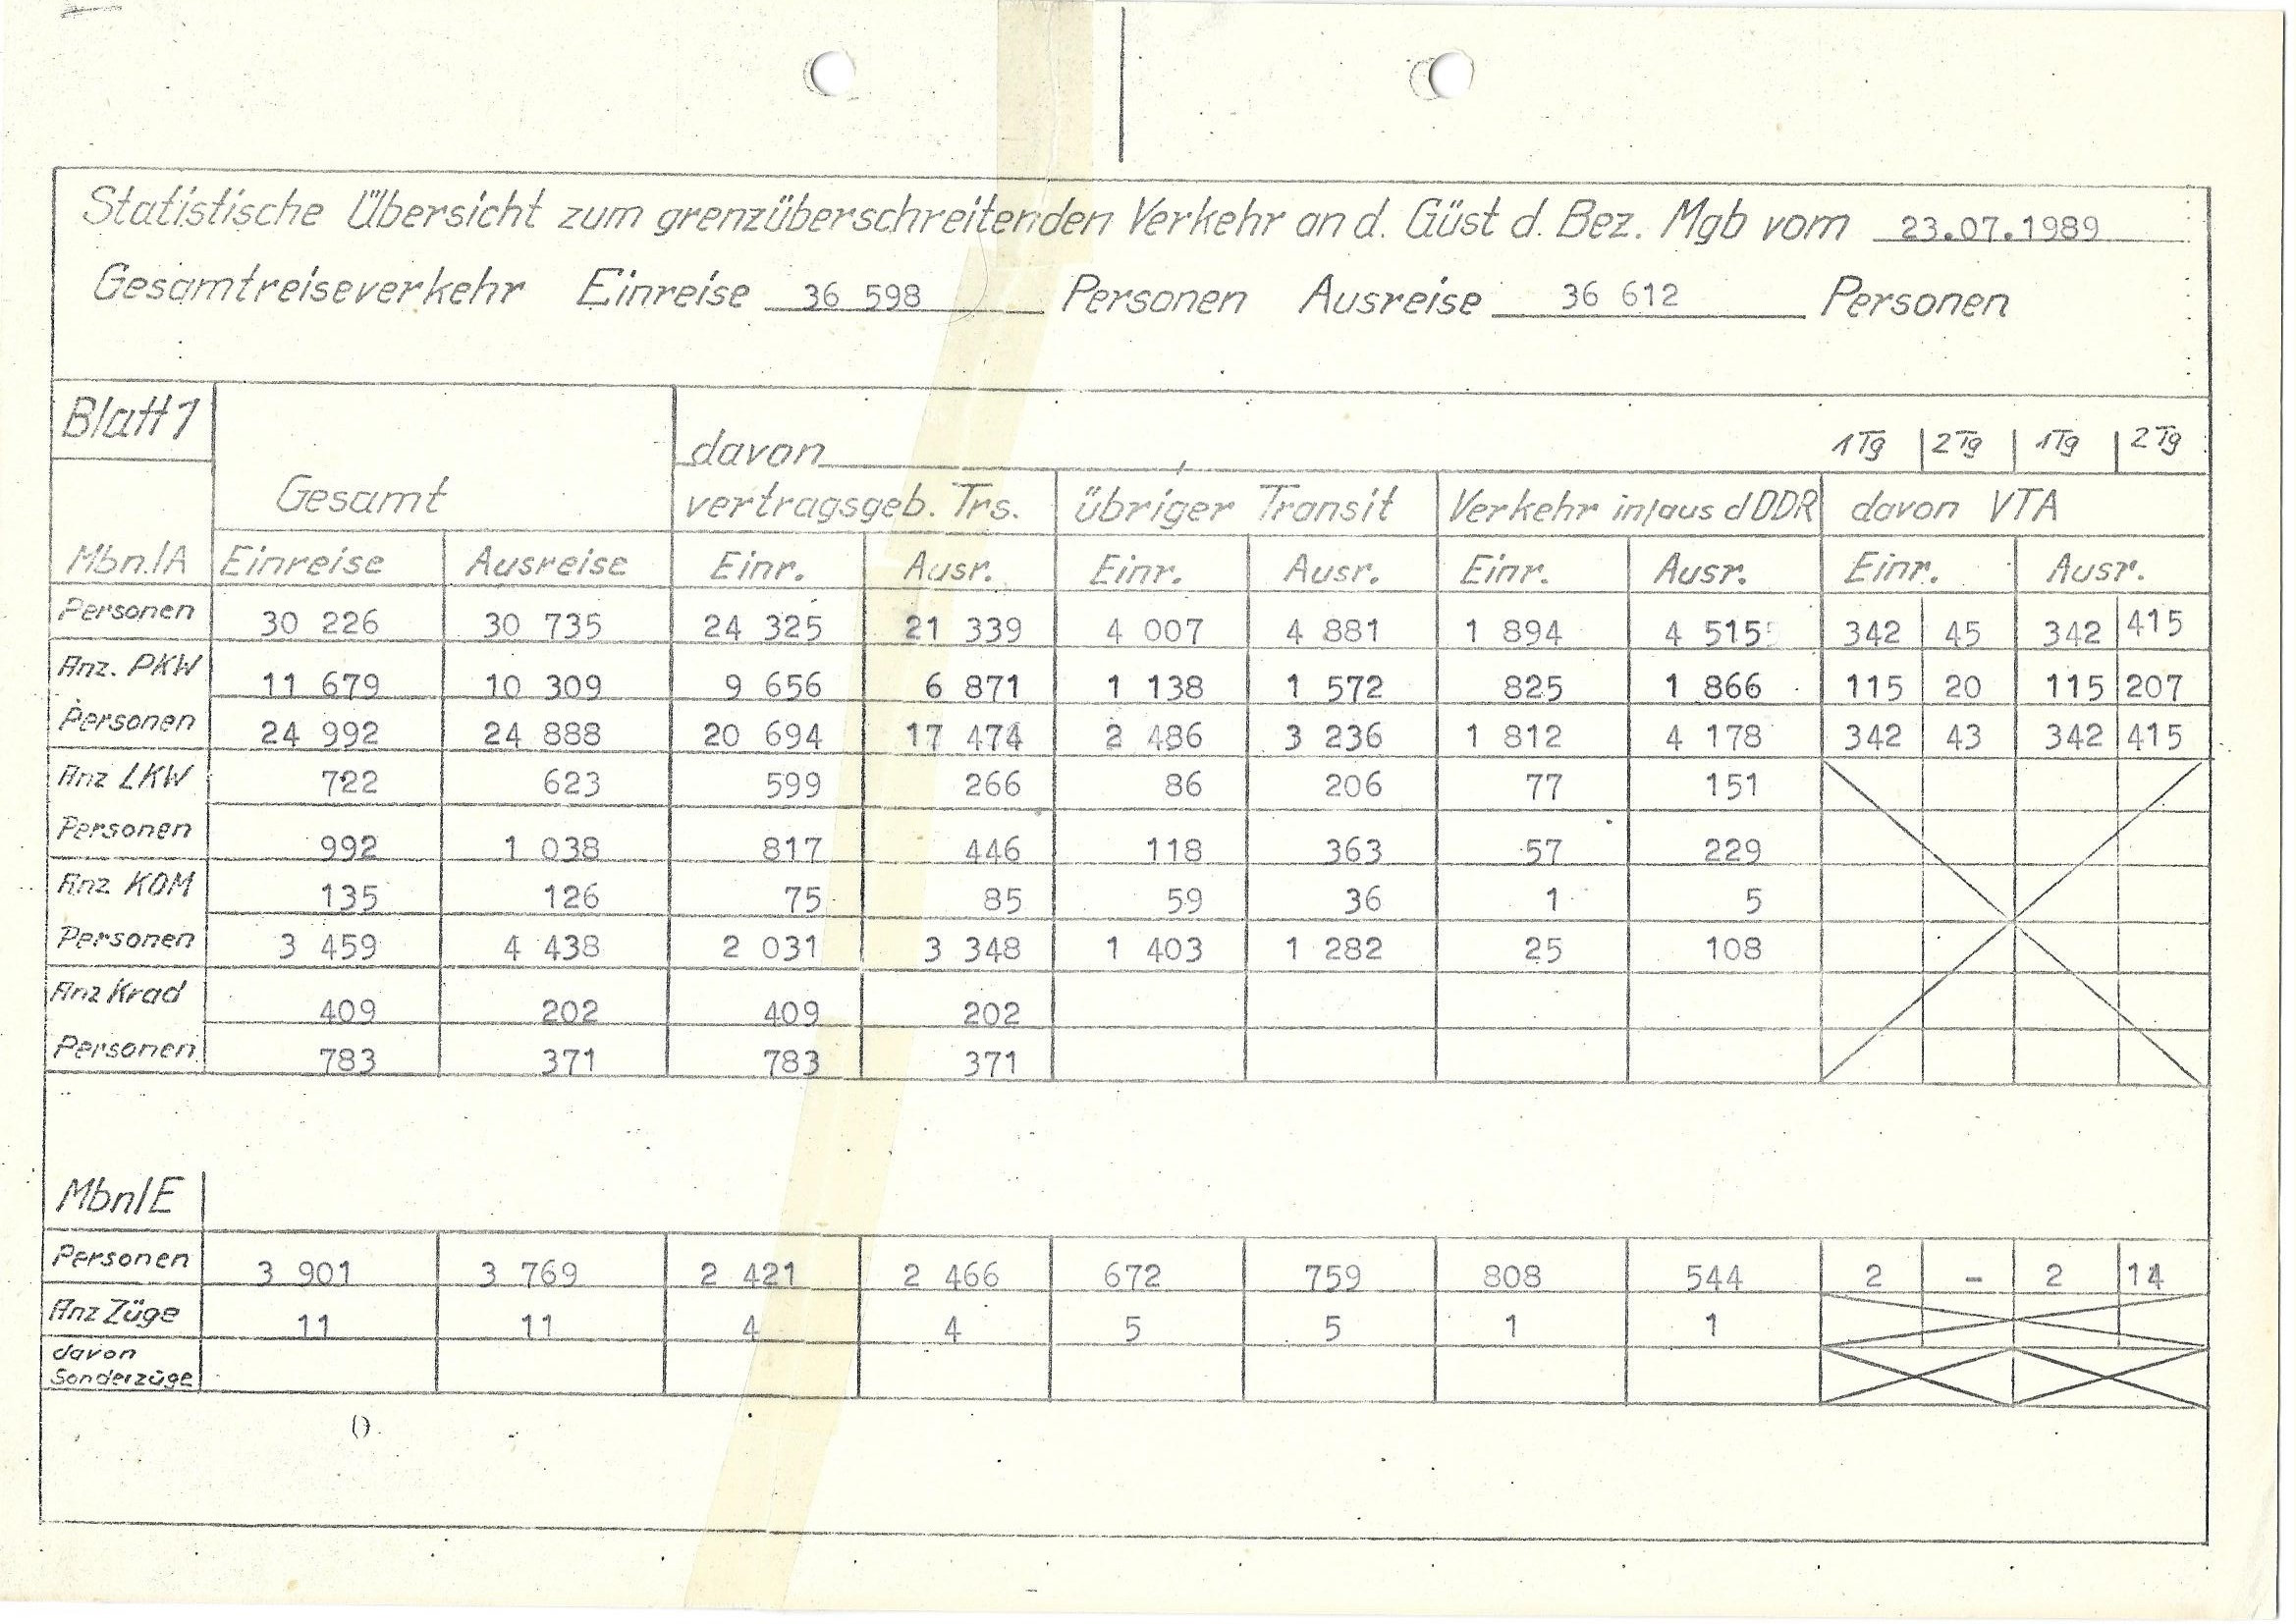 Statistische Übersicht zum grenzüberschreitenden Verkehr an d. Güst d. Bez. Mgb vom 23.07.1989
Gesamtreiseverkehr Einreise 36 598 Personen Ausreise 36 612 Personen
Blatt 1
davon 1 Tg 2 Tg 1 Tg 2 Tg
Gesamt vertragsgeb. Trs. übriger Transit Verkehr in/aus d DDR davon VTA
Mbn./A Einreise Ausreise Einr. Ausr. Einr. Ausr. Einr. Ausr. Einr. Ausr.
Personen 30 226 30 735 24 325 21 339 4 007 4 881 1 894 4 515 342 45 342 415
Anz. PKW 11 679 10 309 9 656 6 871 1 138 1 572 825 1 866 115 20 115 207
Personen 24 992 24 888 20 694 17 474 2 486 3 236 1 812 4 178 342 43 342 415
Anz LKW 722 623 599 266 86 206 77 151
Personen 992 1 038 817 446 118 363 57 229
Anz KOM 135 126 75 85 59 36 1 5
Personen 3 459 4 438 2 031 3 348 1 403 1 282 25 108
Anz Krad 409 202 409 202
Personen 783 371 783 371
Mbn/E
Personen 3 901 3 769 2 421 2 466 672 759 808 544 2 – 2 14
Anz Züge 11 11 4 4 5 5 1 1
davon
Sonderzüge
()